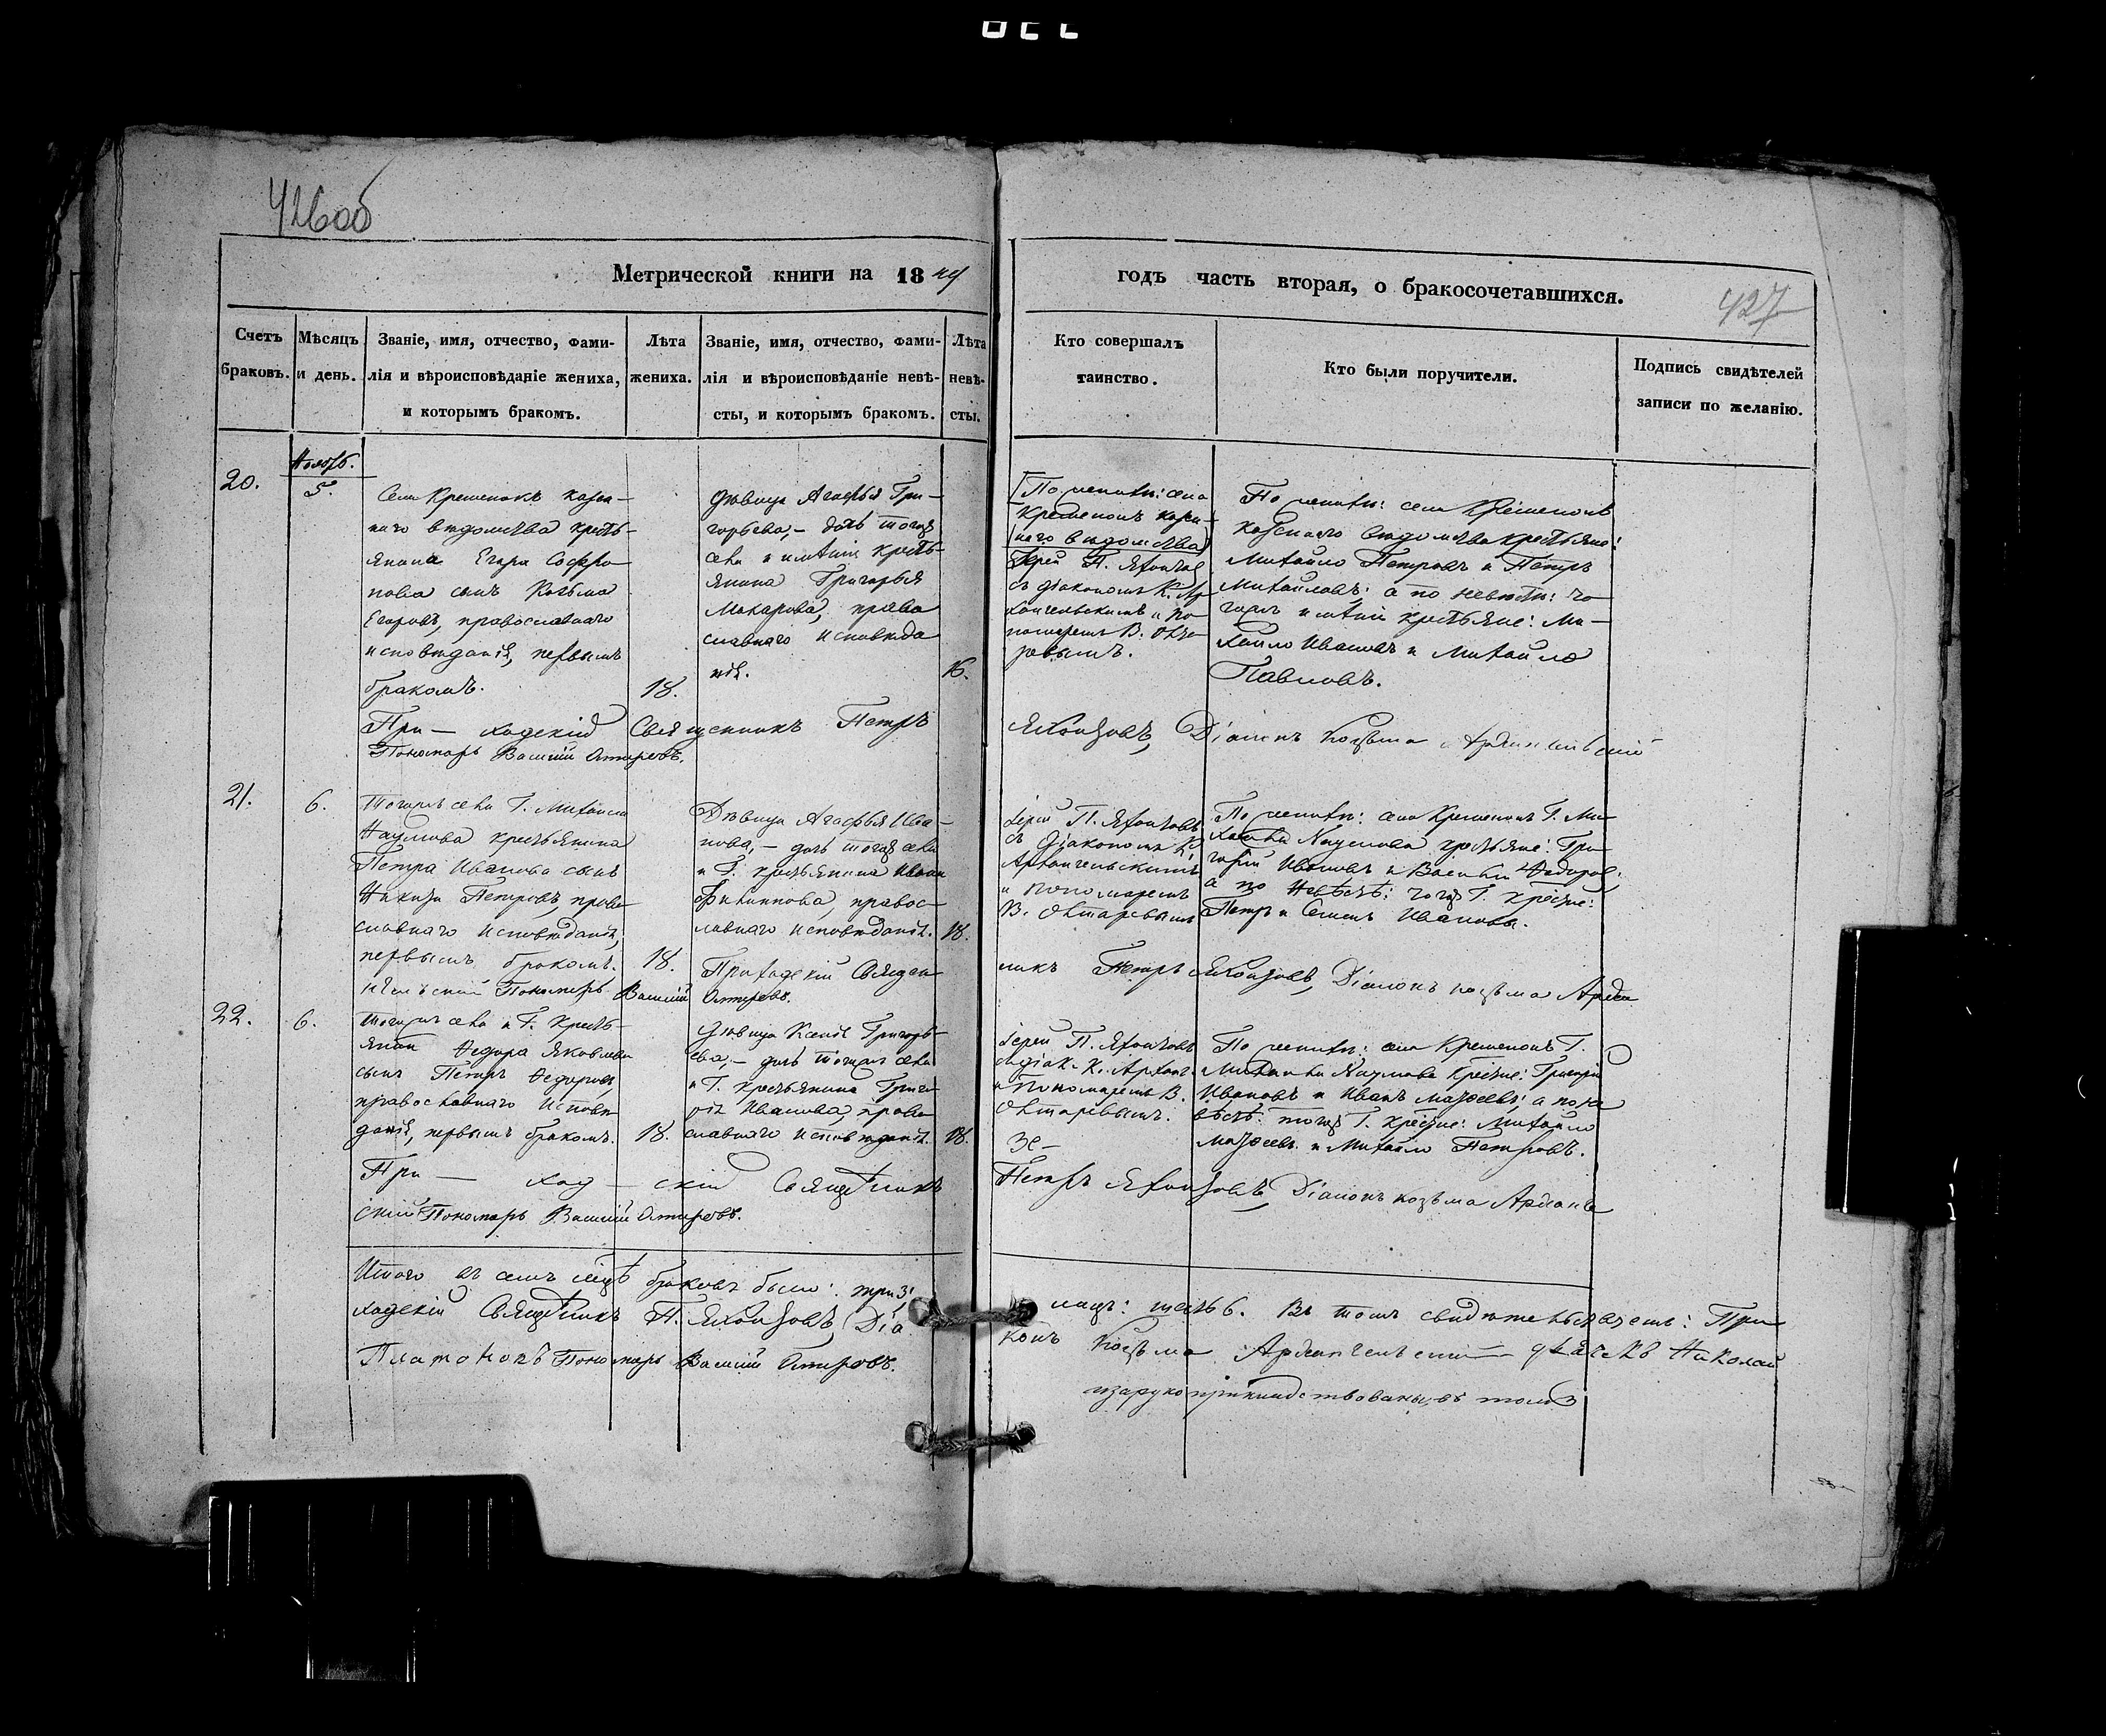 426об
Метрической книги на 18
годъ часть вторая, о бракосочетавшихся.
427
Счетъ браковъ.
Мѣсяцъ и день.
Званіе, имя, отчество, фами-
лія и вѣроисповѣданіе жениха,
и которымъ бракомъ.
Лѣта
жениха.
Званіе, имя, отчество, фами-
лія и вѣроисповѣданіе невѣ-
сты, и которымъ бракомъ.
Лѣта
невѣ-
сты.
Кто совершалъ
таинство.
Кто были поручители.
Подпись свидѣтелей
записи по желанію.
20.
Ноябрь.
5.
Села Кременокъ казен-
наго вѣдомства кресть-
янина Егора Софро
нова сынъ Козьма
Егоровъ, православнаго
исповѣданія, первымъ
бракомъ.
18.
Дѣвица Агафья Гри-
горьева, – дочь тогожъ
села и имѣнія кресть-
янина Григорья
Макарова, право
славнаго исповѣда
нія.
16.
По женихѣ: села
Кременокъ казен-
наго вѣдомства
Іерей П.
съ діакономъ К. Ар
хангельскимъ и по
номаремъ В.
По женихѣ: села Кременокъ
казеннаго вѣдомства крестьяне:
Михайло Петровъ и Петръ
Михайловъ; а по невѣстѣ: то
гожъ имѣнія крестьяне: Ми-
хайло Ивановъ и Михайло
Павловъ.
При – ходскій Священникъ Петръ
Діаконъ Козьма Архангельскій
Пономарь Василій
21.
6.
Тогожъ села Г. Михайла
Наумова крестьянина
Петра Иванова сынъ
Петровъ, право
славнаго исповѣданія,
первымъ бракомъ.
18.
Дѣвица Агафья Ива-
нова, – дочь тогожъ села
и Г. крестьянина Ивана
Филиппова, правос-
лавнаго исповѣданія.
18.
Іерей П.
съ Діакономъ К.
Архангельскимъ
и пономаремъ
В.
По женихѣ: села Кременокъ Г. Ми
хайлы Наумова крестьяне: Гри
горій Ивановъ и Василій Федоровъ;
а по невѣстѣ: тогожъ Г. крестьяне:
Петръ и Семенъ Ивановы.
Приходскій Священ
никъ Петръ Діаконъ Козьма Архан
гельскій Пономарь Василій
22.
6.
Тогожъ села и Г. кресть-
янина Федора Яковлева
сынъ Петръ Федоровъ,
православнаго исповѣ
данія, первымъ бракомъ.
18.
Дѣвица Ксенія Григорь-
ева, – дочь тогожъ села
и Г. крестьянина Григо
рія Иванова, право
славнаго исповѣданія.
18.
Іерей П.
съ діак. К. Арханг.
и Пономаремъ В.
По женихѣ: села Кременокъ Г.
Михайлы Наумова крестьяне: Григорій
Ивановъ и Иванъ Матѳеевъ; а по не
вѣстѣ: тогожъ Г. крестьяне: Михайло
Матѳеевъ и Михайло Петровъ.
При – ход – скій Священникъ
Петръ Діаконъ Козьма Арханге
скій Пономарь Василій
Итого въ семъ мѣсяцѣ браковъ было: три 3;
лицъ: шесть 6. Въ томъ свидѣтельствуемъ: При
ходскій Священникъ П. Діа
конъ Козьма Архангельскій дьячекъ Николай
Платоновъ Пономарь Василій